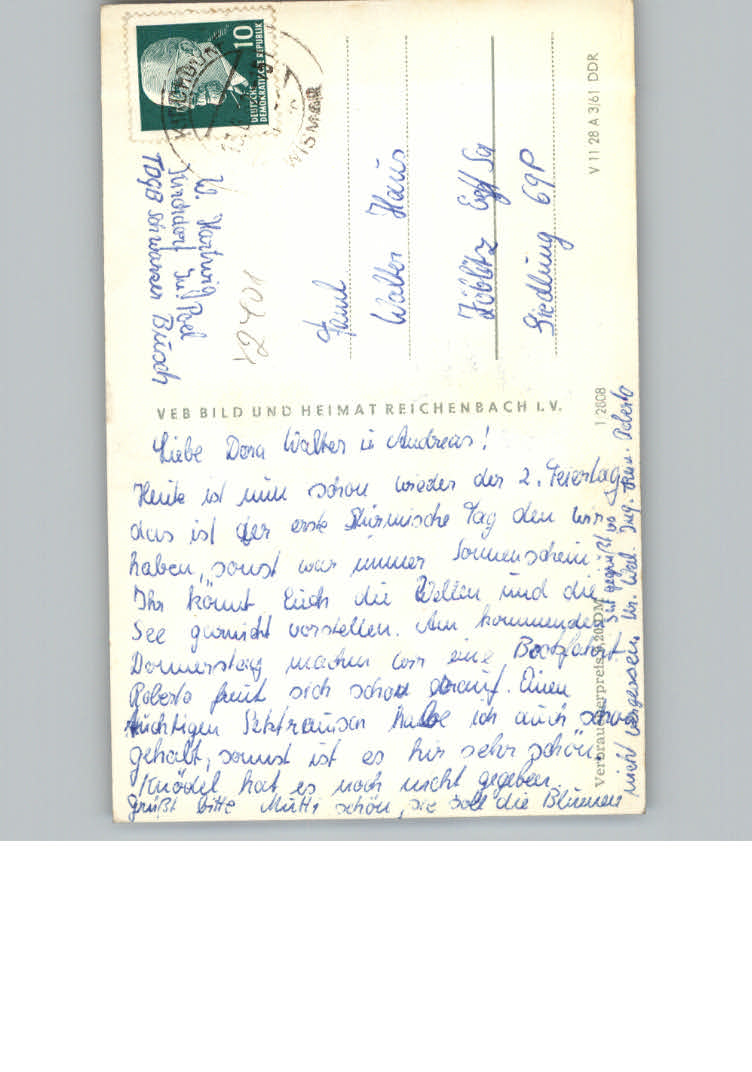 10
DEUTSCHE
DEMOKRATISCHE REPUBLIK
WISMAR
W. Hartwig
Kirchdorf Ins. Poel
FDGB schwarzer Busch
12401
Faml
Walter Haus
Zöblitz Erzg
Siedlung 69P
V 11 28 A 3/61 DDR
VEB BILD UND HEIMAT REICHENBACH I. V.
1 2808
Verbraucherpreis 0,20 DM
Liebe Dora Walter u Andreas!
Heute ist nun schon wieder der 2. Feiertag
das ist der erste stürmische Tag den wir
haben, sonst war immer Sonnenschein.
Ihr könnt Euch die Wellen und die
See garnicht vorstellen. Am kommenden
Donnerstag machen wir eine Bootsfahrt.
Roberto freut sich schon darauf. Einen
tüchtigen habe ich auch schon
gehabt, sonst ist es hir sehr schön.
Knödel hat es noch nicht gegeben.
Grüßt bitte Mutti schön, sie soll die Blumen
nicht vergessen. Ing. Roberto
Seit gegrüßt